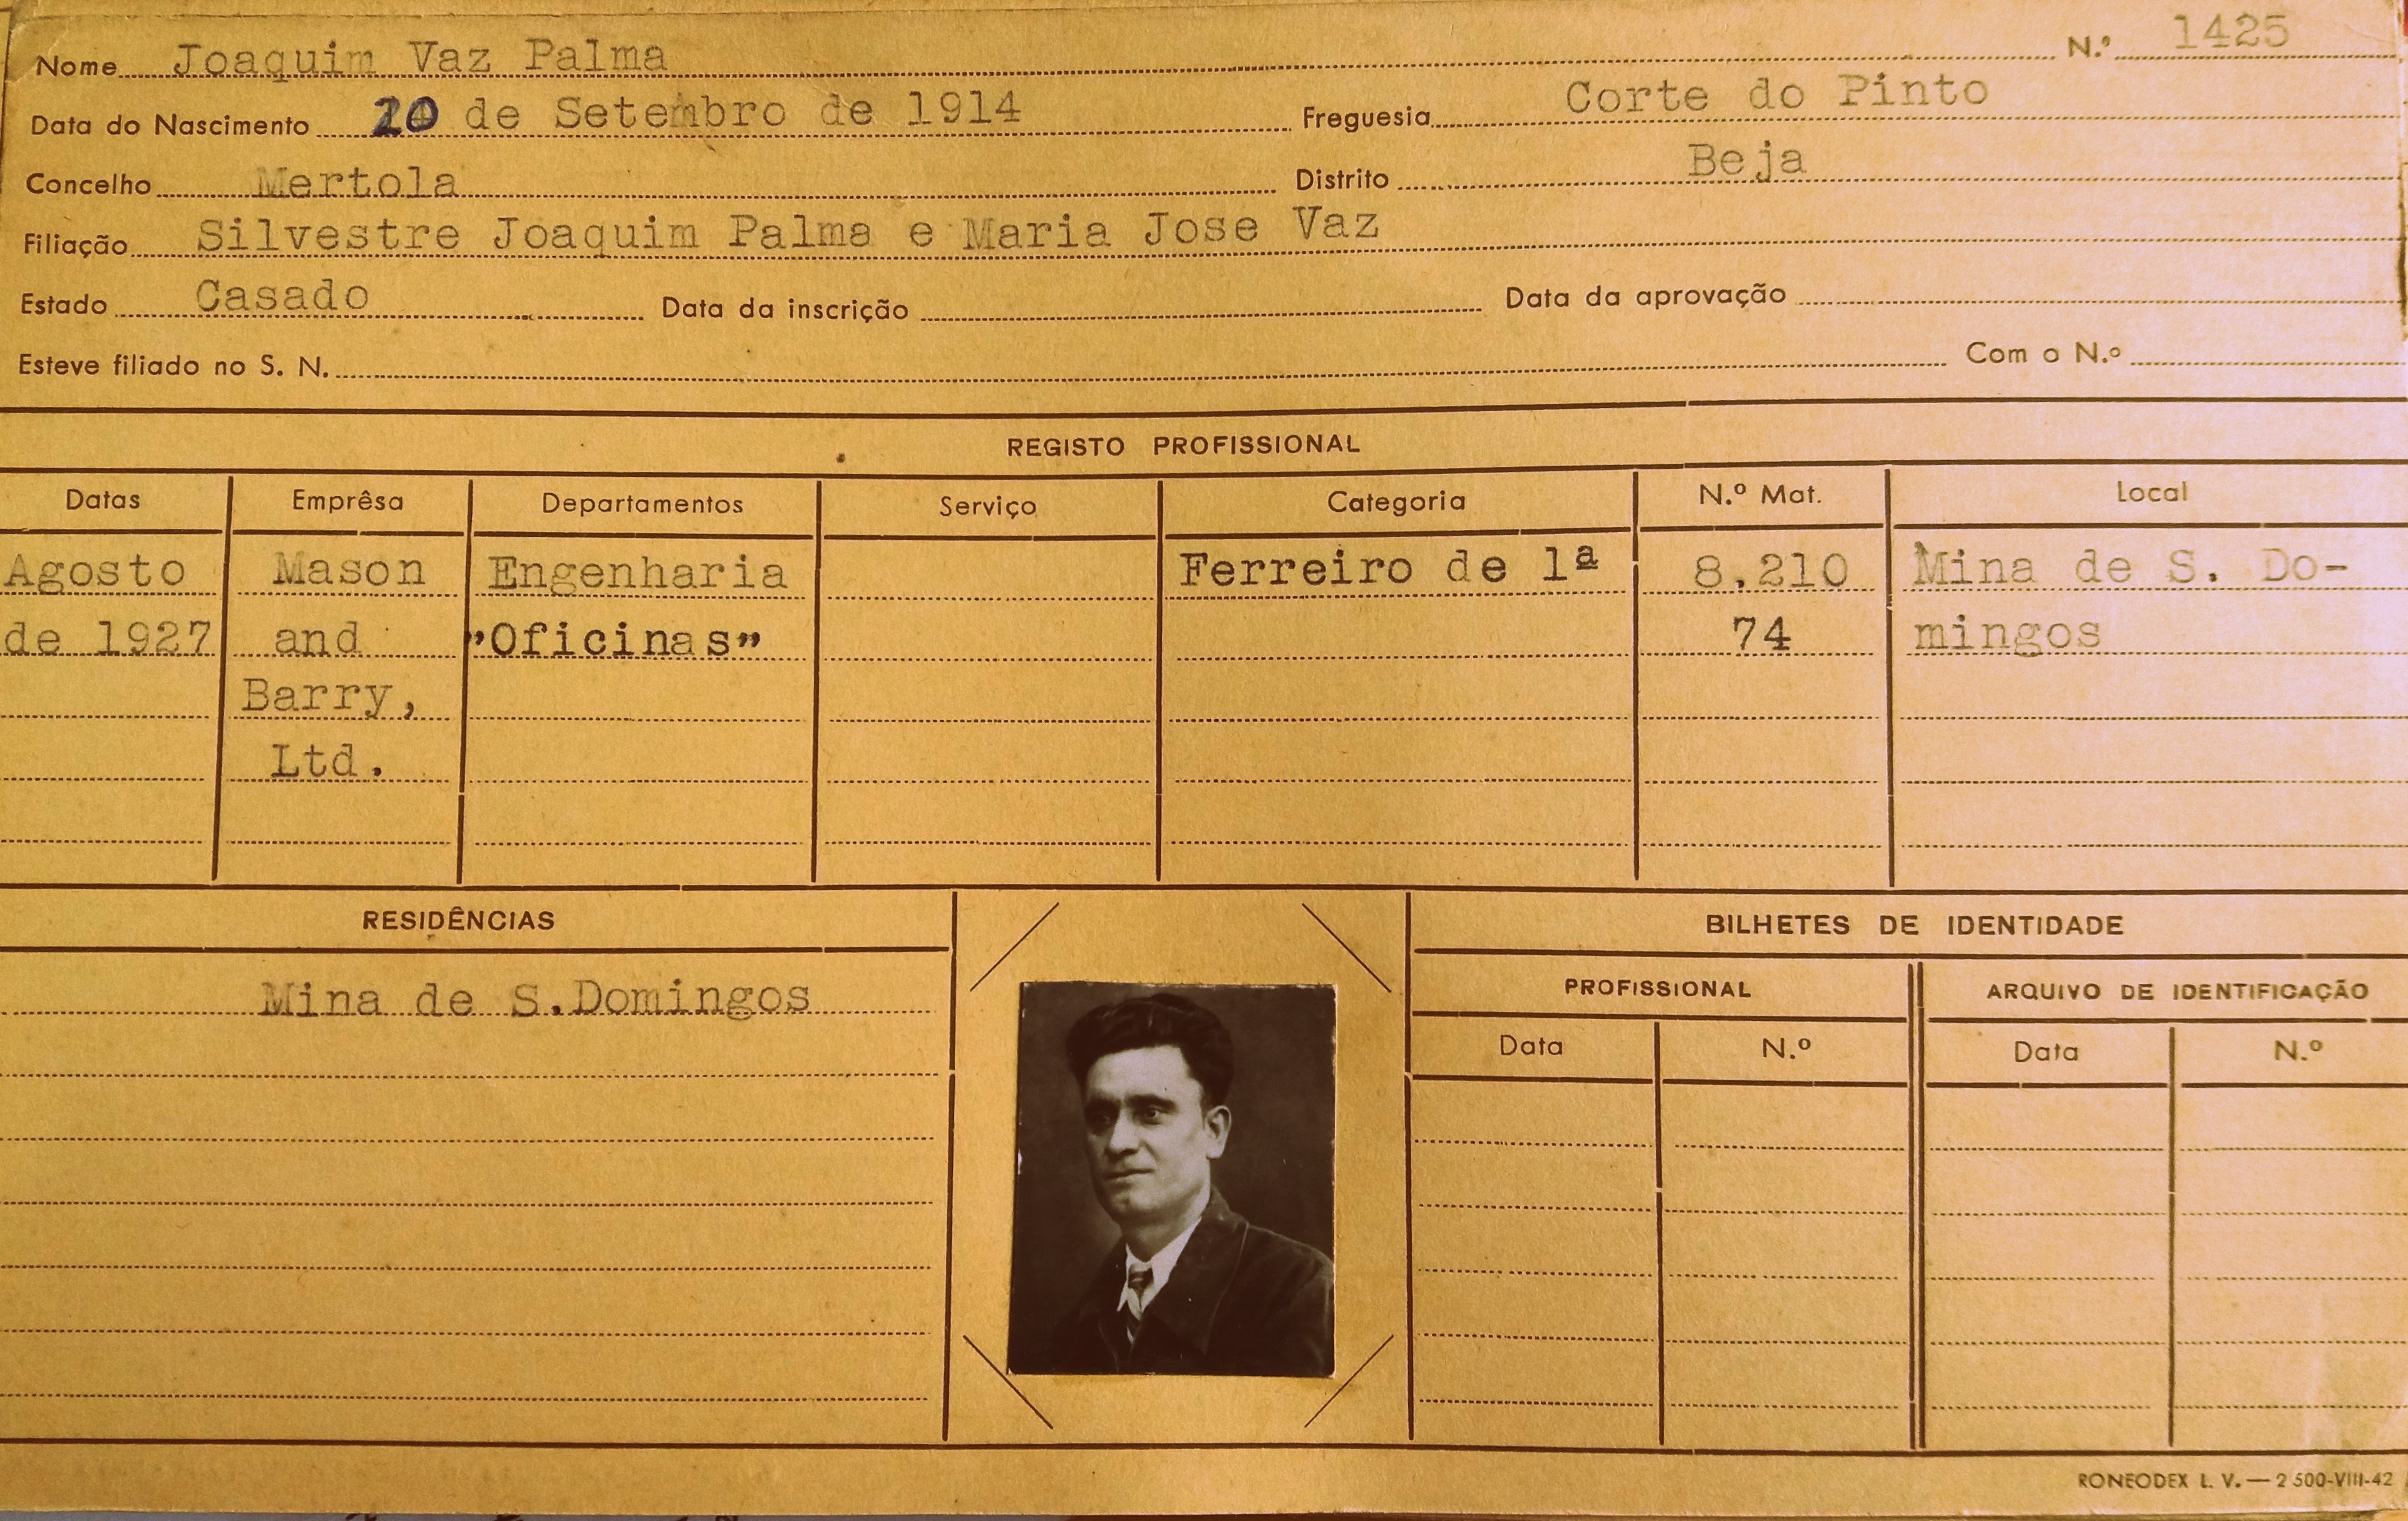 Nome Joaquim Vaz Palma N.º 1425
Data do Nascimento 20 de Setembro de 1914 Freguesia Corte do Pinto
Concelho Mertola Distrito Beja
Filiação Silvestre Joaquim Palma e Maria Jose Vaz
Estado Casado Data da inscrição Data da aprovação
Esteve filiado no S. N. Com o N.º
REGISTO PROFISSIONAL
Datas Emprêsa Departamentos Serviço Categoria N.º Mat. Local
Agosto Mason Engenharia Ferreiro de 1ª 8.210 Mina de S. Do-
de 1927 and "Oficinas" 74 mingos
Barry,
Ltd.
RESIDÊNCIAS BILHETES DE IDENTIDADE
Mina de S.Domingos PROFISSIONAL ARQUIVO DE IDENTIFICAÇÃO
Data N.º Data N.º
RONEODEX L. V. — 2 500-VIII-42